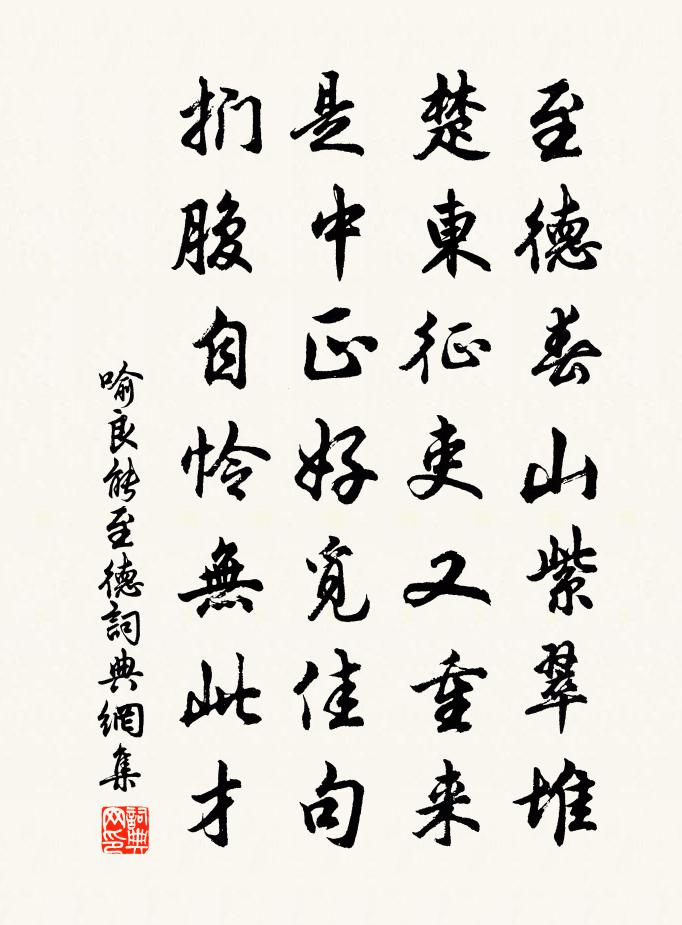 至德春山紫翠堆
楚東征吏又重来
是中正好覓佳句
捫腹自怜無此才
喻良能至德詞典網集
詞典网印